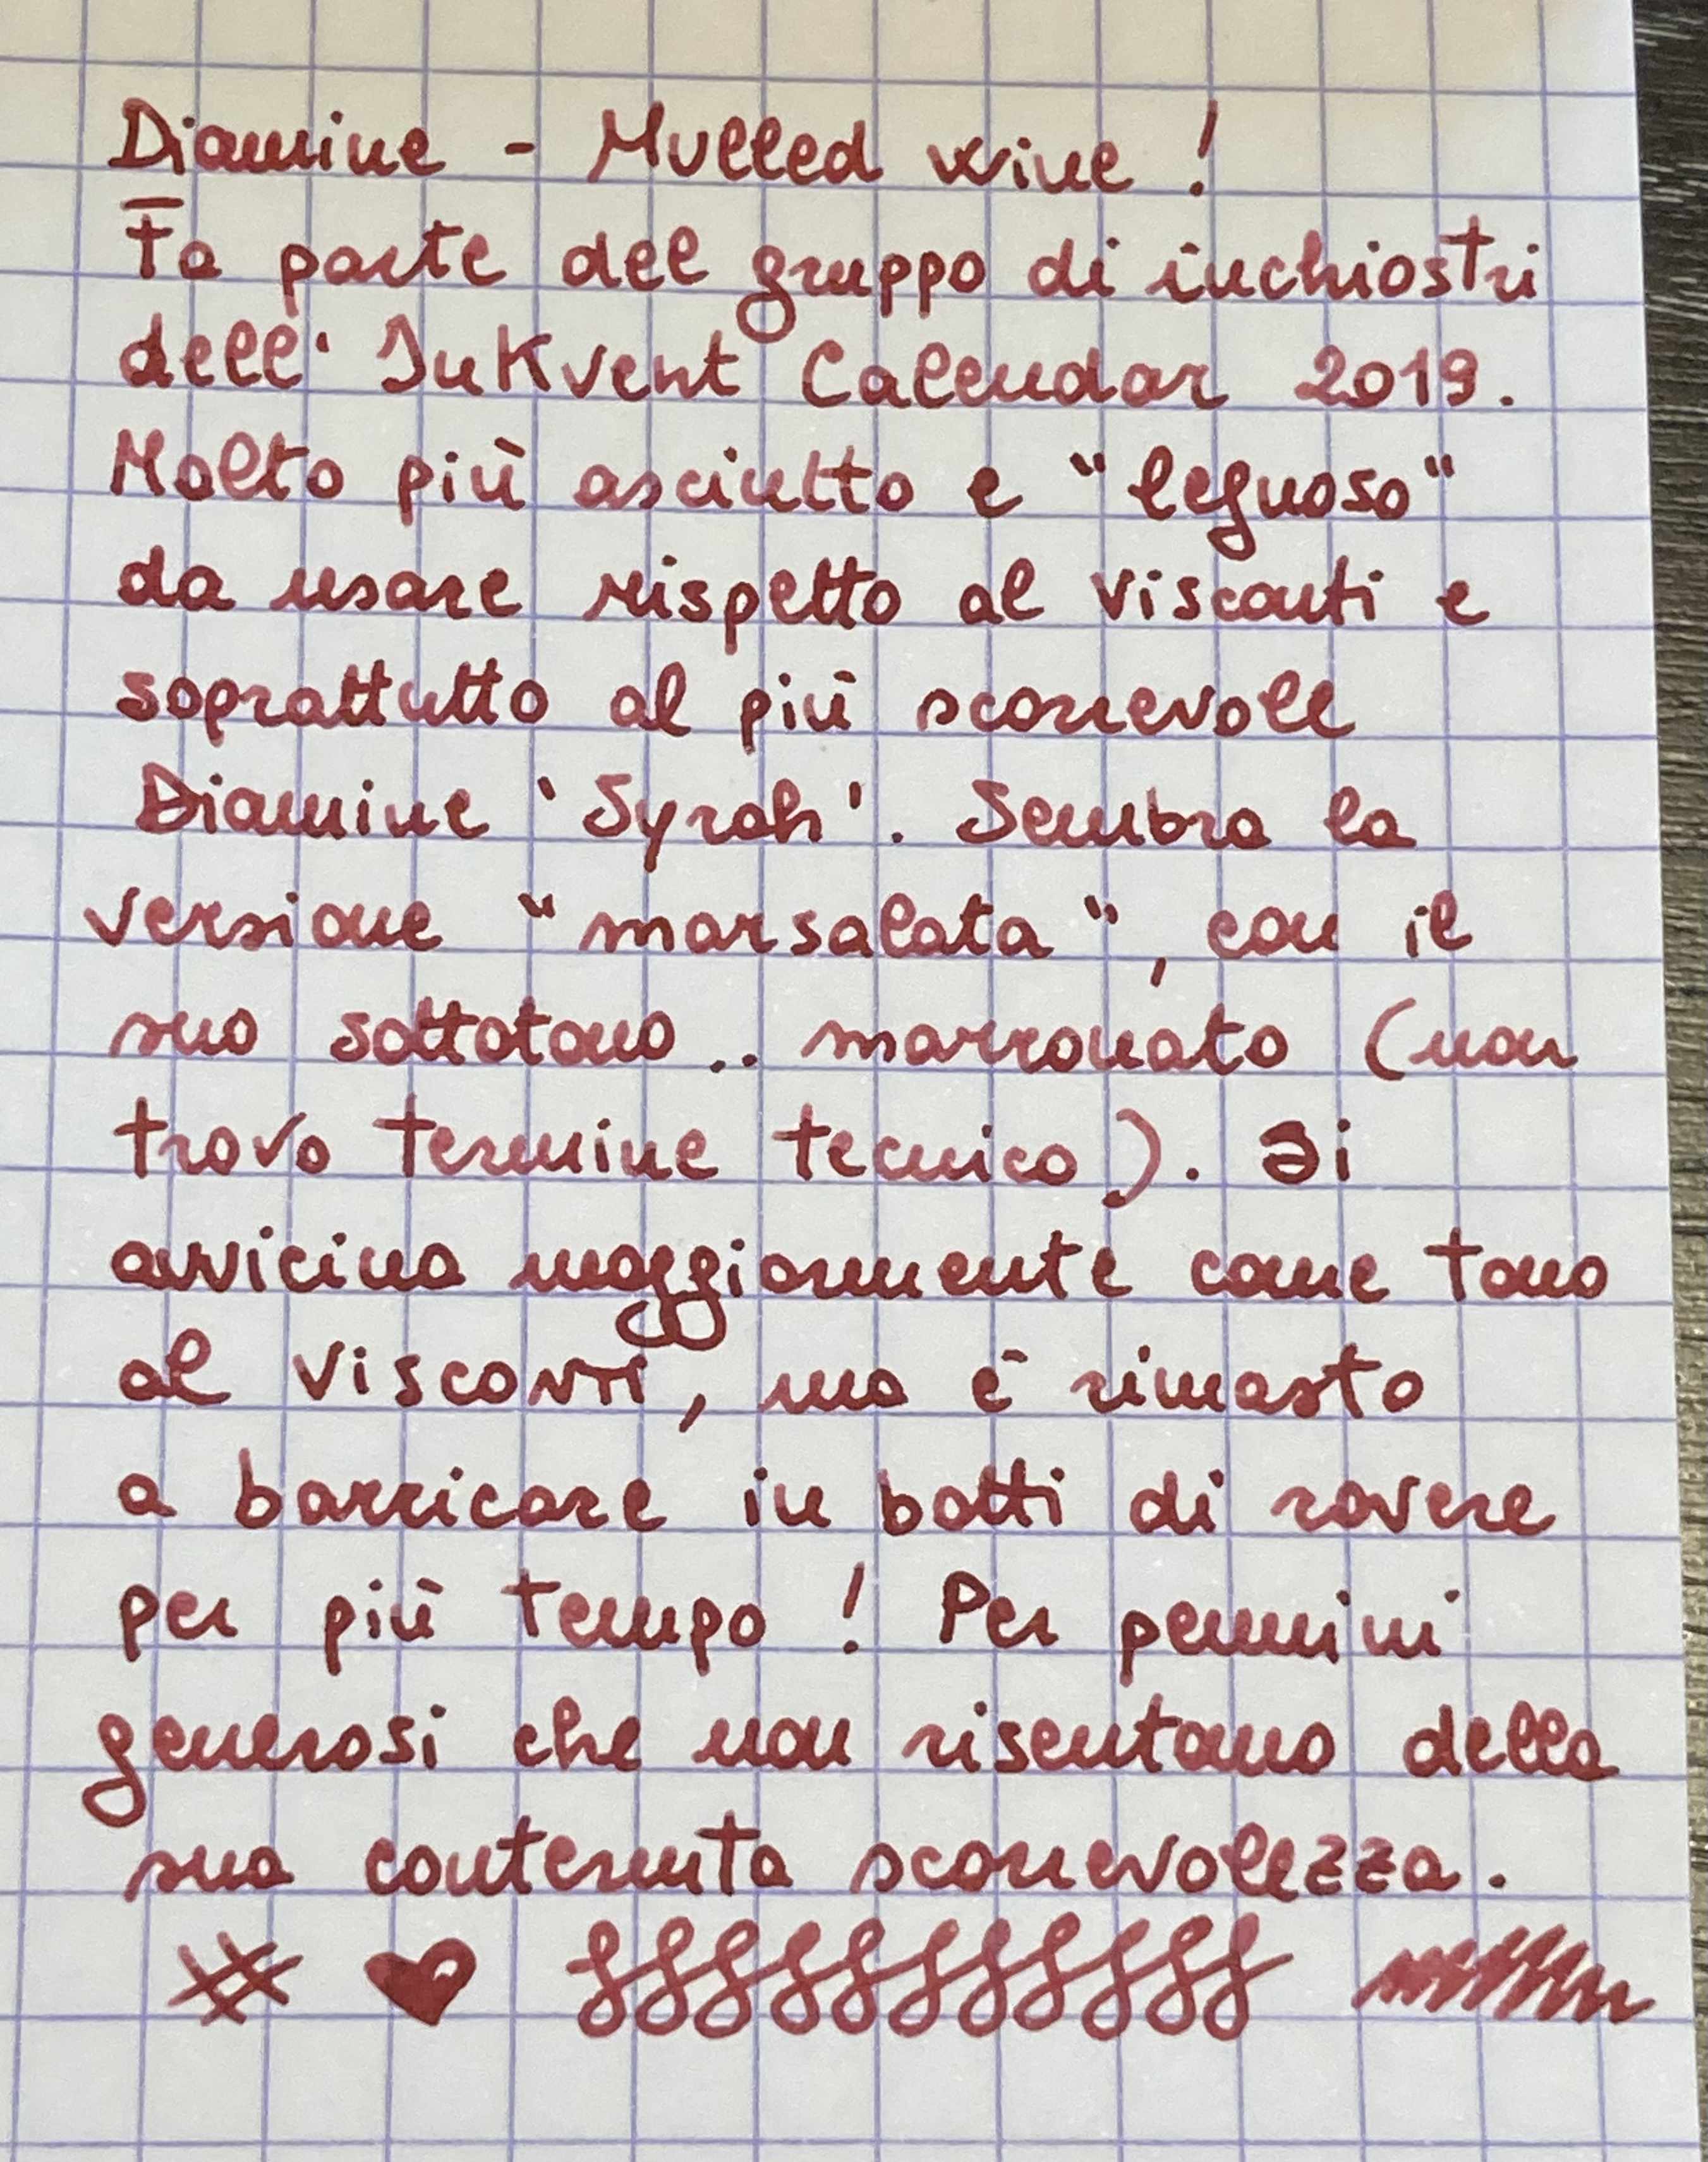 Diamine - Mulled wine !
Fa parte del gruppo di inchiostri
dell' InKvent Calendar 2019.
Molto più asciutto e "legnoso"
da usare rispetto al Visconti e
soprattutto al più scorrevole
Diamine 'Syrah'. Sembra la
versione "marsalata", con il
suo sottotono.. marronato (non
trovo termine tecnico). Si
avvicina maggiormente come tono
al Visconti, ma è rimasto
a barricare in botti di rovere
per più tempo ! Per pennini
generosi che non risentano della
sua contenuta scorrevolezza.